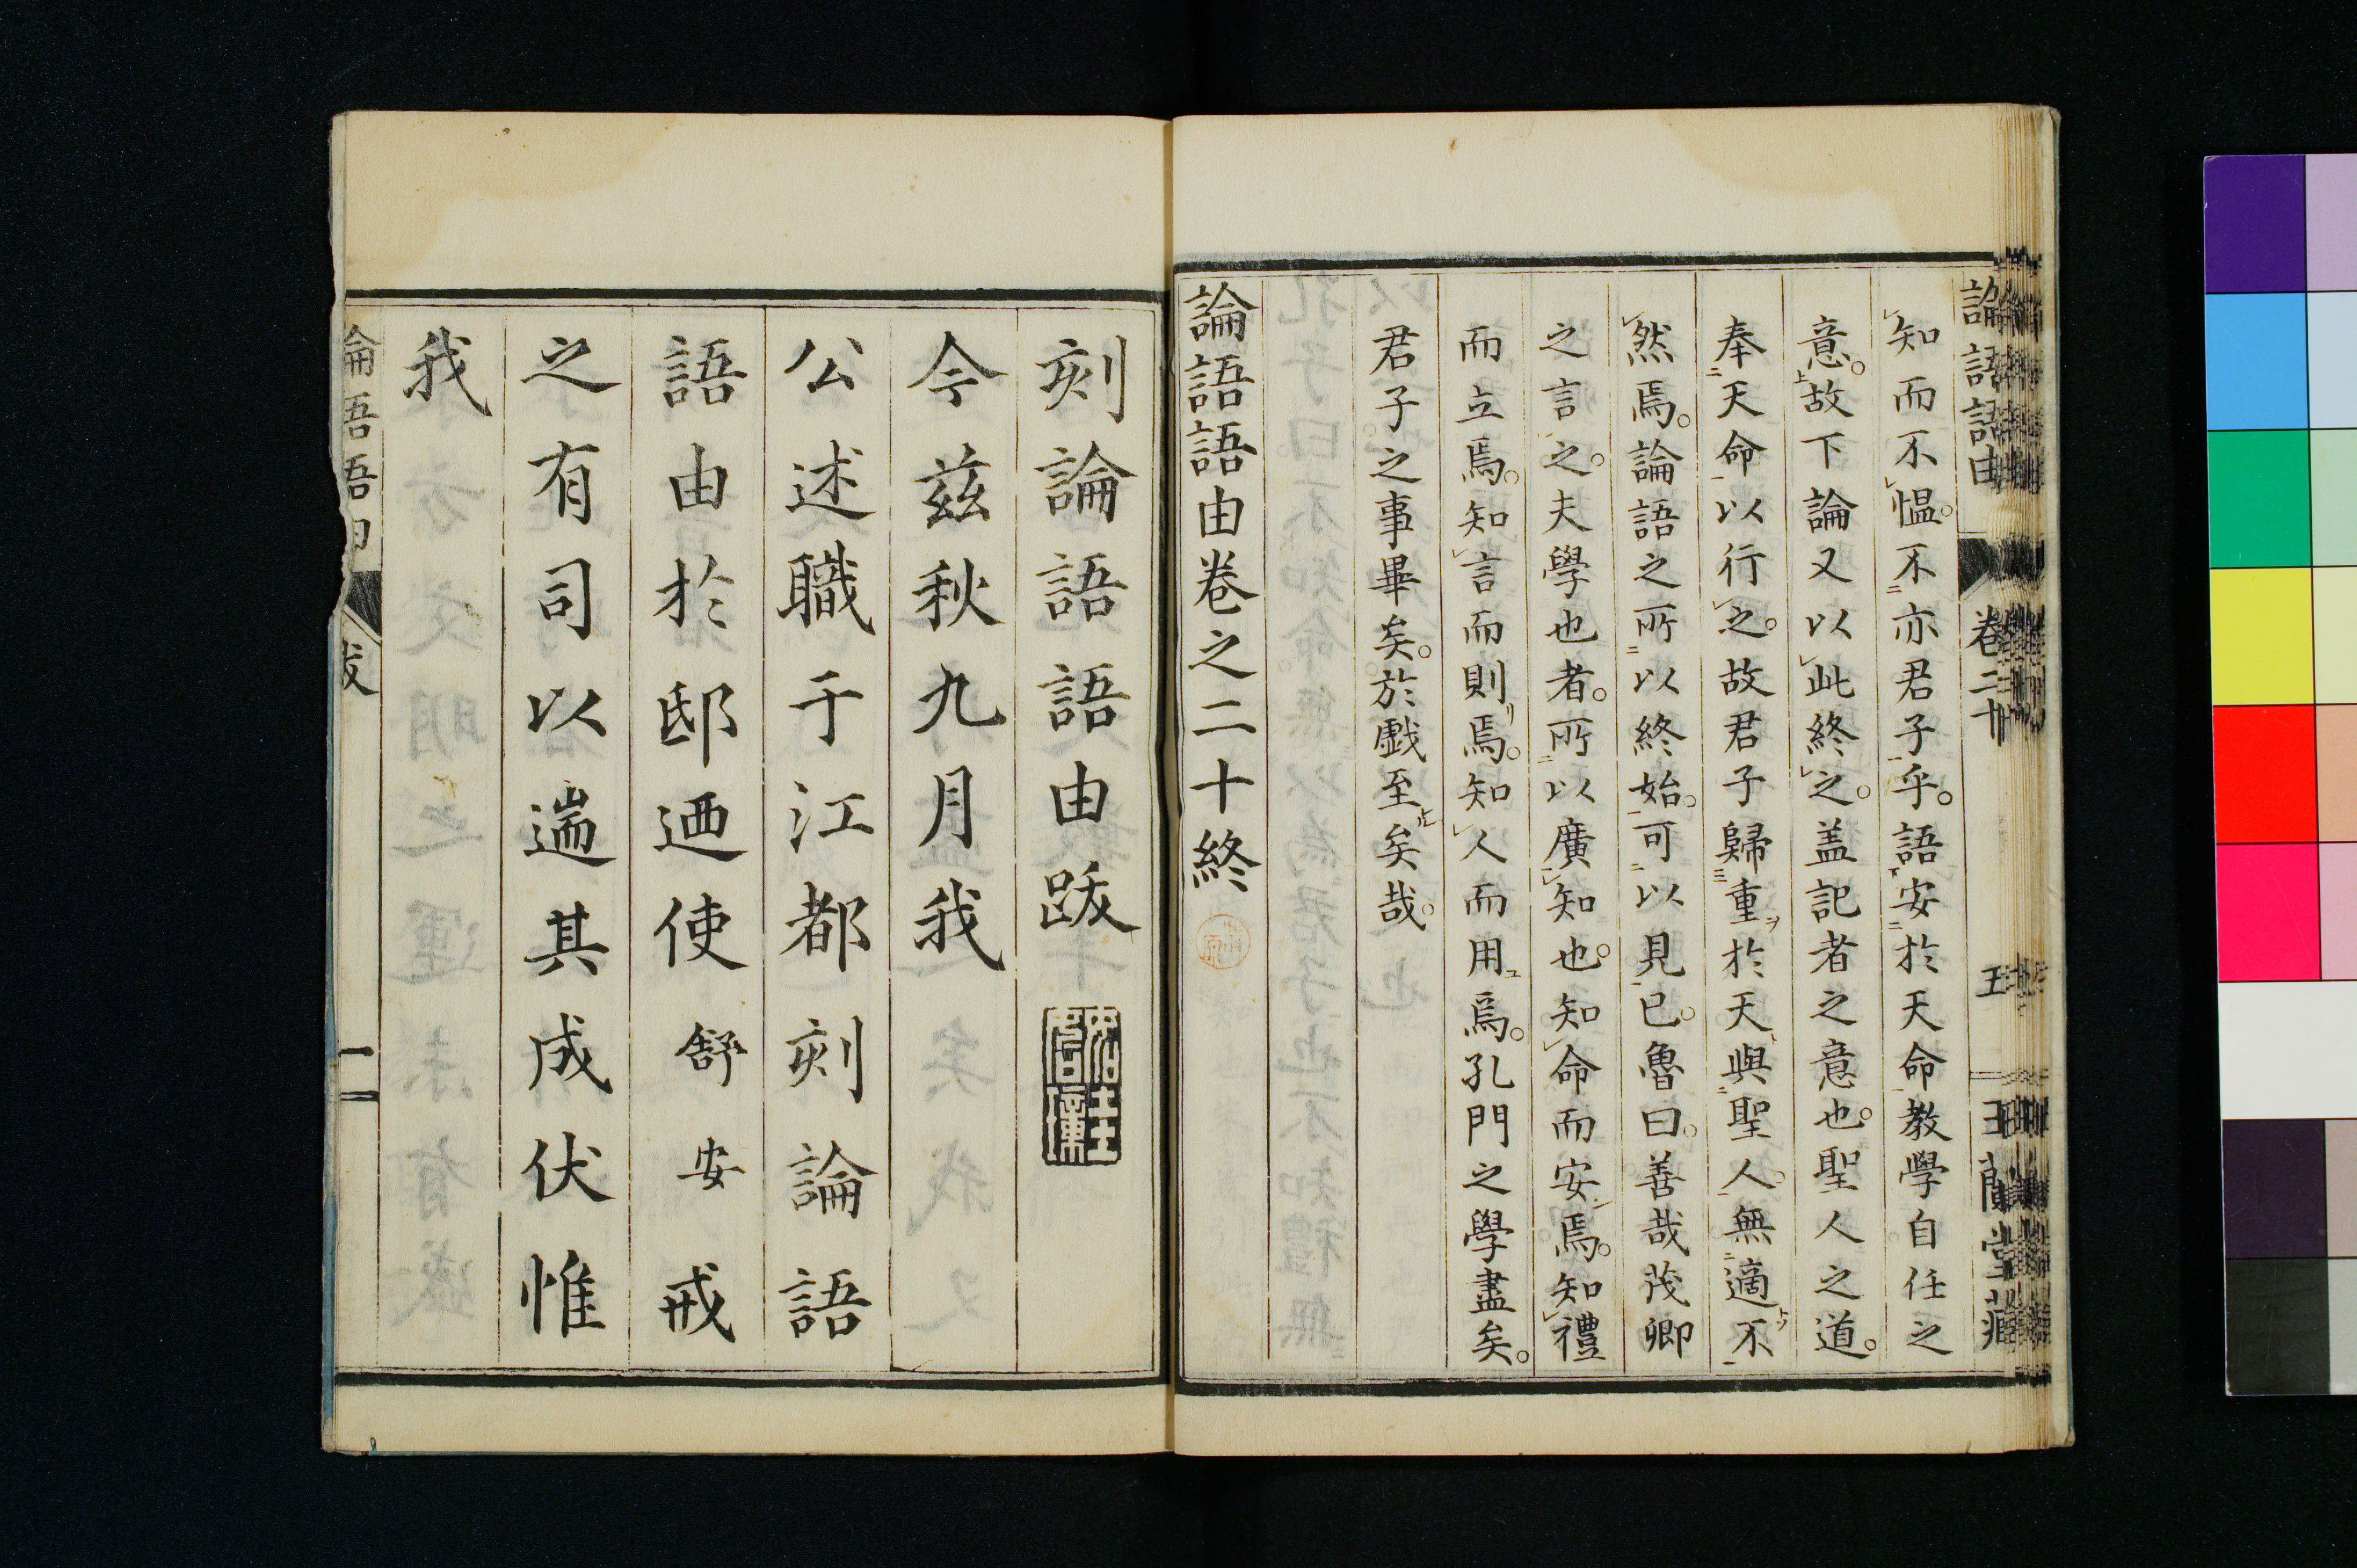 論語語由 卷二十 五 玉蘭堂藏
知而不慍。不亦君子乎。語安於天命教學自任之
意。故下論又以此終之。盖記者之意也。聖人之道。
奉天命以行之。故君子歸重於天與聖人。無適不
然焉。論語之所以終始。可以見已。魯曰。善哉茂卿
之言之。夫學也者。所以廣知也。知命而安焉。知禮
而立焉。知言而則焉。知人而用焉。孔門之學盡矣。
君子之事畢矣。於戲至矣哉。
論語語由卷之二十終
刻論語語由跋
今茲秋九月我
公述職于江都刻論語
語由於邸迺使舒安戒
之有司以遄其成伏惟
我
論語語由 跋 一